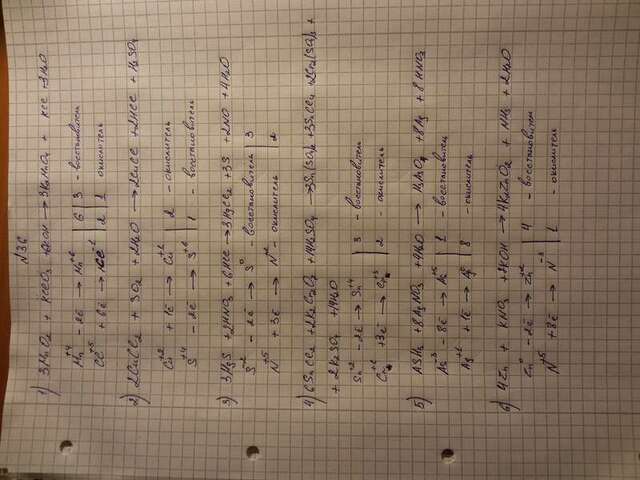 N36
1) 3MnO2 + KClO3 + 6KOH → 3K2MnO4 + KCl + 3H2O
Mn+4 − 2ē → Mn+6 | 6 | 3 - восстановитель
Cl+5 + 6ē → Cl-1 | 2 | 1 окислитель
2) 2CuCl2 + SO2 + 2H2O → 2CuCl + 2HCl + H2SO4
Cu+2 + 1ē → Cu+1 | 2 - окислитель
S+4 − 2ē → S+6 | 1 - восстановитель
3) 3H2S + 2HNO3 + 6HCl → 3 + 3S + 2NO + 4H2O
S-2 − 2ē → S0 - восстановитель | 3
N+5 + 3ē → N+2 - окислитель | 2
4) 6SnCl2 + 2K2Cr2O7 + 14H2SO4 → 3Sn(SO4)2 + 3SnCl4 + 2Cr2(SO4)3 +
+ 2K2SO4 + 14H2O
Sn+2 − 2ē → Sn+4 | 3 - восстановитель
Cr+6 + 3ē → Cr+3 | 2 - окислитель
5) AsH3 + 8AgNO3 + 4H2O → H3AsO4 + 8Ag + 8HNO3
As-3 − 8ē → As+5 | 1 - восстановитель
Ag+1 + 1ē → Ag0 | 8 - окислитель
6) 4Zn + KNO3 + 7KOH → 4K2ZnO2 + NH3 + 2H2O
Zn0 − 2ē → Zn+2 | 4 - восстановитель
N+5 + 8ē → N-3 | 1 - окислитель